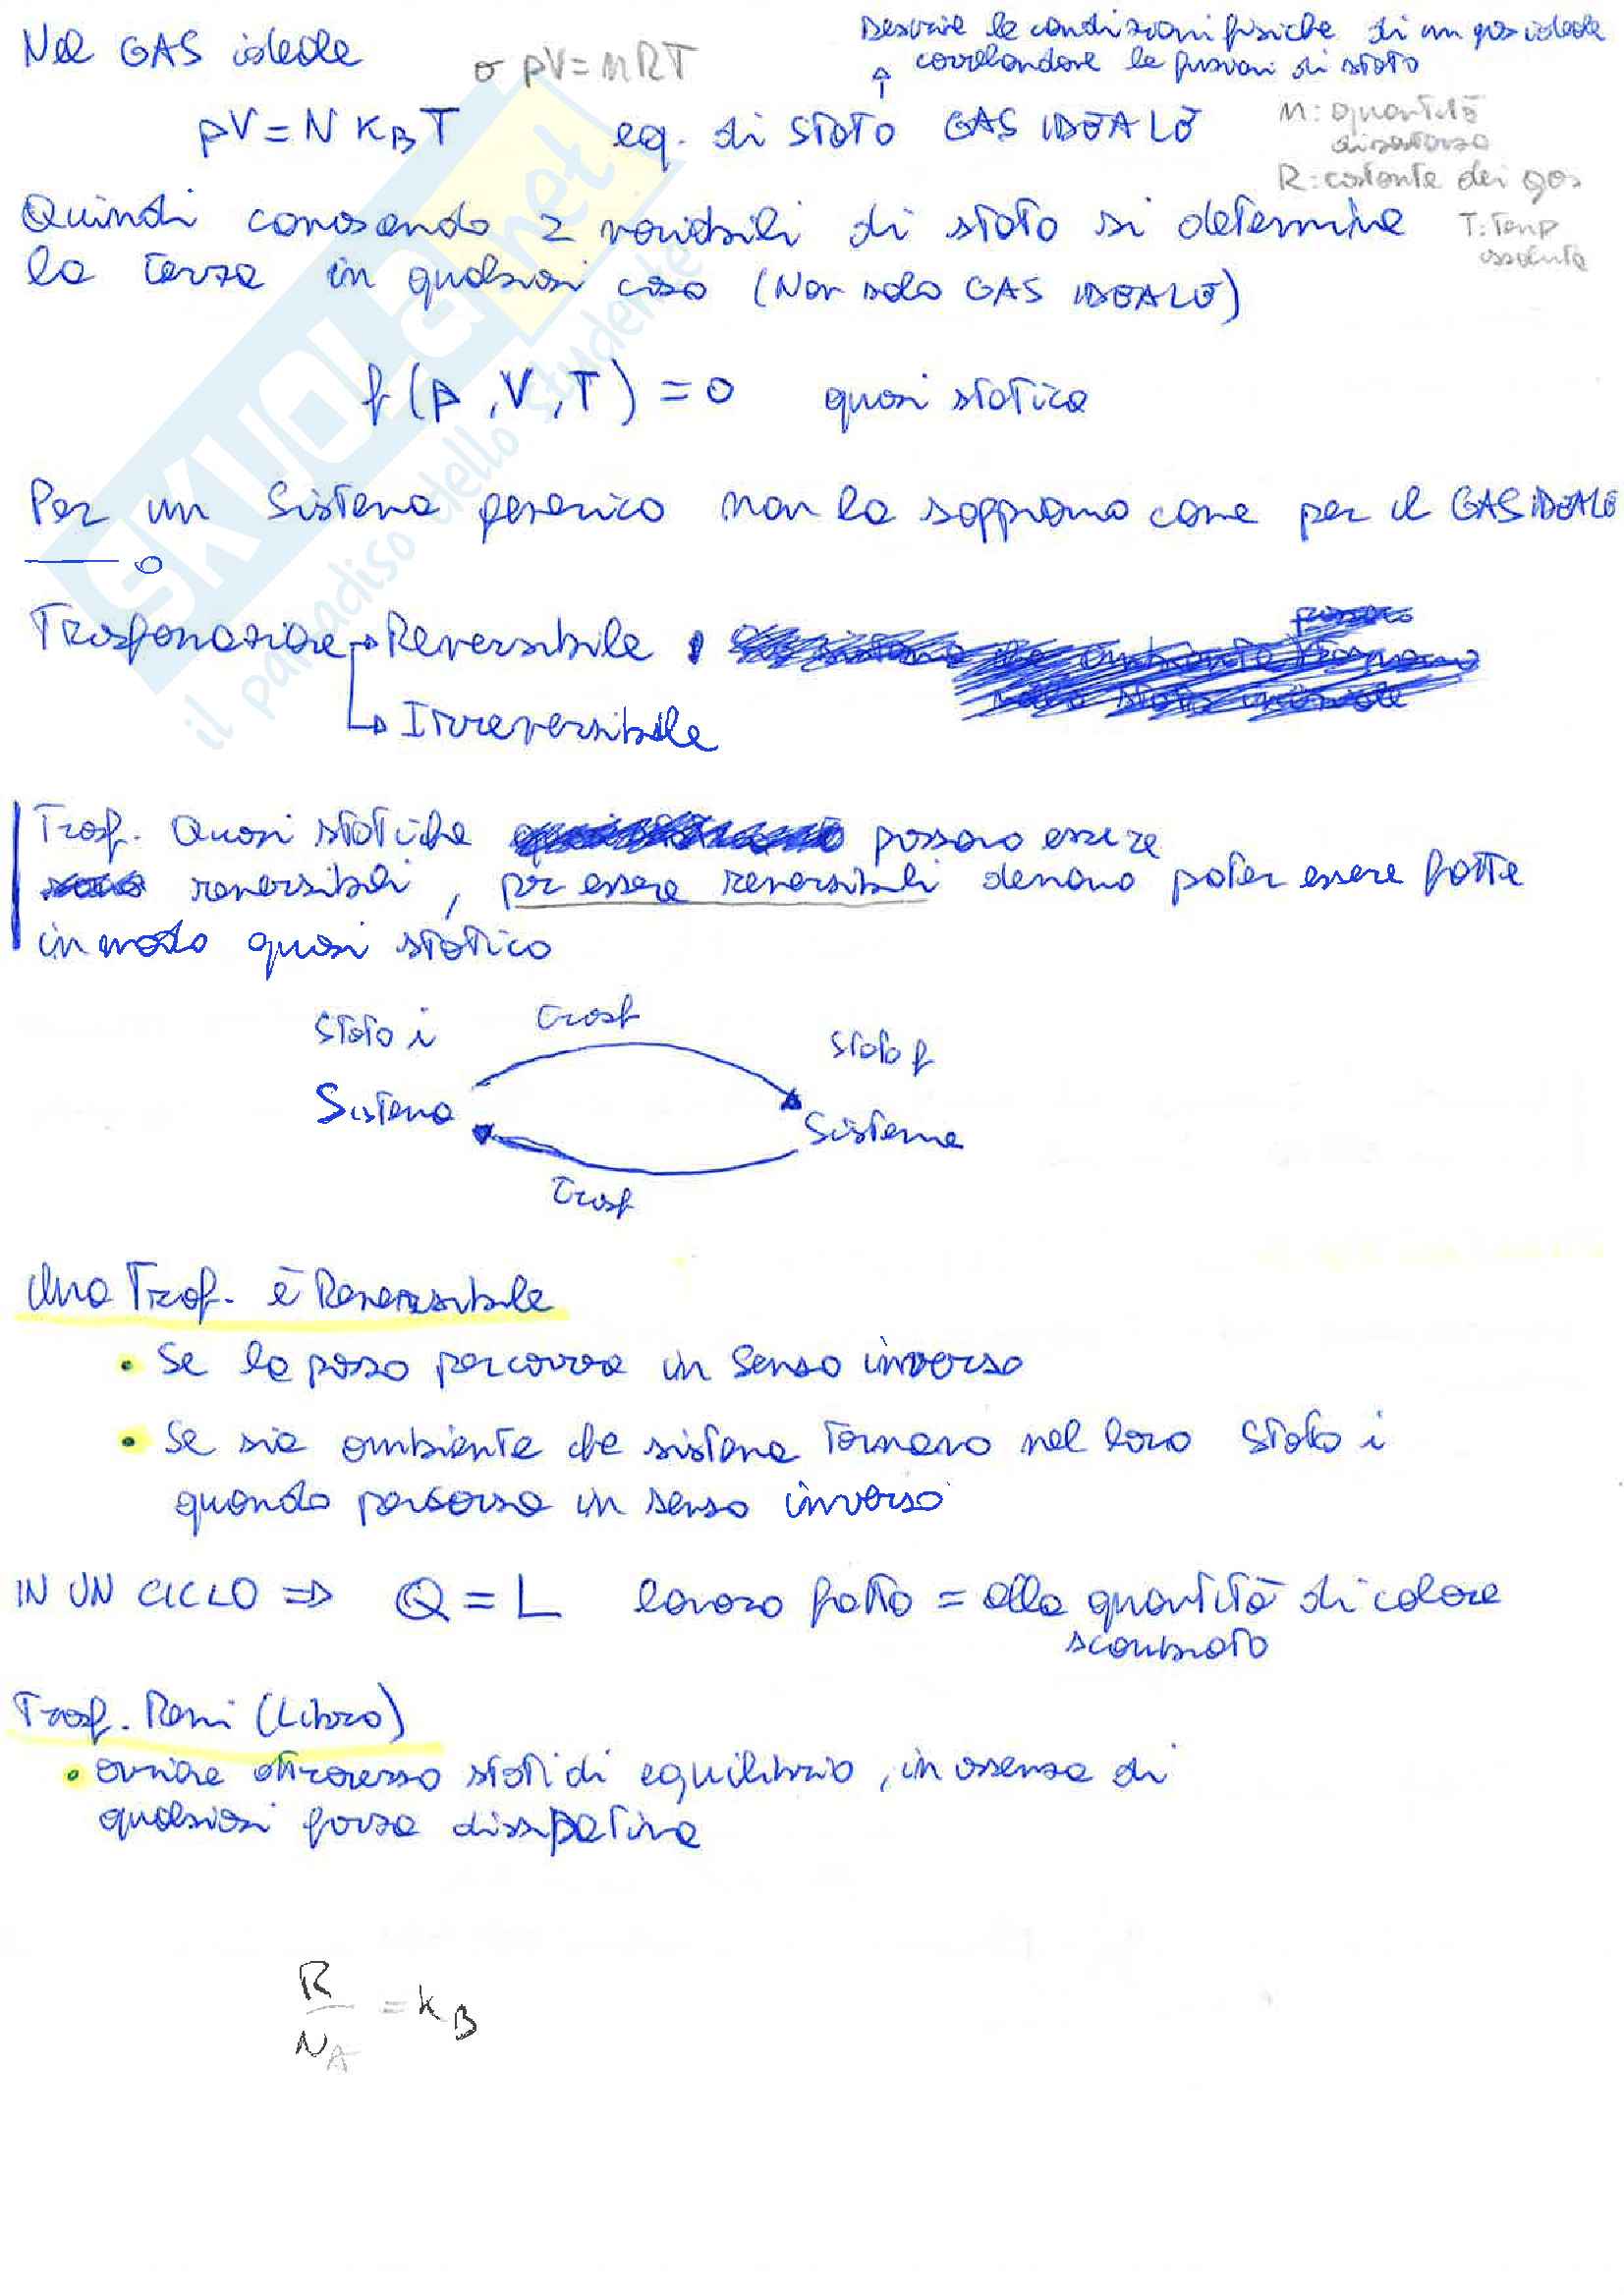 Nel GAS ideale
o pV=nRT
Descrive le condizioni fisiche di un gas ideale
correlandone le funzioni di stato
pV = N KB T eq. di stato GAS IDEALE
n: quantità
di sostanza
R: costante dei gas
T: Temp
assoluta
Quindi conoscendo 2 variabili di stato si determina
la terza in qualsiasi caso (Non solo GAS IDEALE)
f(p, V, T) = 0 quasi statica
Per un Sistema generico non la sappiamo come per il GAS IDEALE
Trasformazione → Reversibile
→ Irreversibile
Trasf. Quasi statiche possono essere
reversibili, per essere reversibili devono poter essere fatte
in modo quasi statico
Stato i Trasf Stato f
Sistema Sistema
Trasf
Una Trasf. è Reversibile
• Se la posso percorrere in senso inverso
• Se sia ambiente che sistema tornano nel loro stato i
quando percorsa in senso inverso
IN UN CICLO ⇒ Q = L lavoro fatto = alla quantità di calore
scambiato
Trasf. (Libro)
• avviene attraverso stati di equilibrio, in assenza di
qualsiasi forza dissipativa
R/NA = kB
SKUOLA.net
il paradiso dello studente